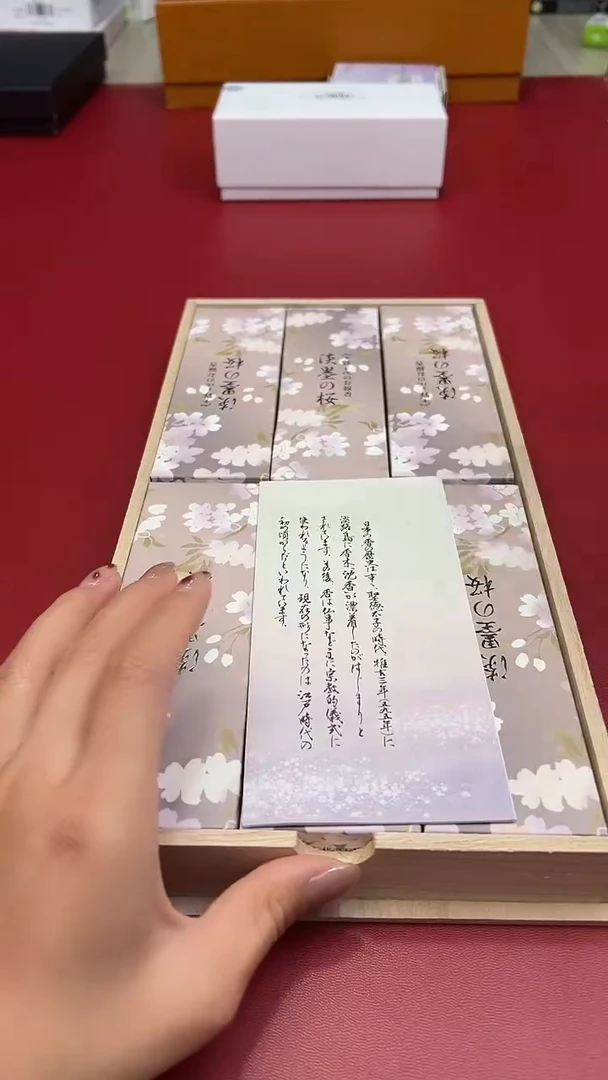 淡墨の桜
淡墨の桜
淡墨の桜
淡墨の桜
日本の香の歴史は古く、聖徳太子の時代、推古三年(五九五年)に
淡路島に香木「沈香」が漂着したのがはじまりと
されています。その後、香は仏事など主に宗教的儀式に
使われるようになり、現在の形になったのは江戸時代の
初め頃からだといわれています。